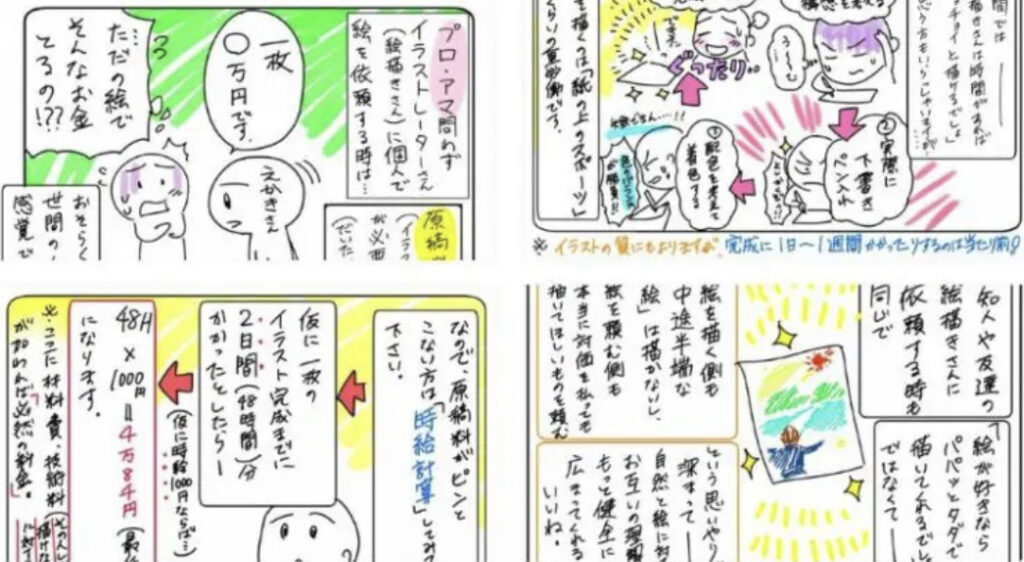 プロ・アマ問わず
イラストレーターさん
(絵描きさん)に個人で
絵を依頼する時は…
原稿
(イラ
が必要
(だいた
一枚
〇万円です。
えかきさん
ただの絵で
そんなお金
とるの!???
おそらく
世間の
感覚で
間では
描きさんは時間があれば
チョイと描けるでしょ」
思う方もいらっしゃいますが…
う〜〜ん
②実際に
下書き
ペン入れ
③配色を考えて
着色する
ぐったり…
を描くのは「紙の上のスポーツ」
くらいの重労働です。
※イラストの質にもよりますが、完成に1日〜1週間かかったりするのは当たり前!
なので、原稿料がピンと
こない方は「時給計算」してみて
下さい。
仮に一枚の
イラスト完成までに
2日間(48時間)分
かかったとしたらー
(仮に時給1000円ならば…)
48H×1000円=4万8千円(最低
になります。
※ここに材料費、技術料
が加われば必然の料金。
知人や友達の
絵描きさんに
依頼する時も
同じで
「絵が好きなら
パパッとタダで
描いてくれるでしょ
ではなくて—
絵を描く側も
中途半端な
絵」は描かないし、
絵を頼む側も
本当に対価を払っても
描いてほしいものを頼む
という思いやり
深まって—
自然と絵に対
お互いの理解
もっと健全に
広まってくれる
いいね。